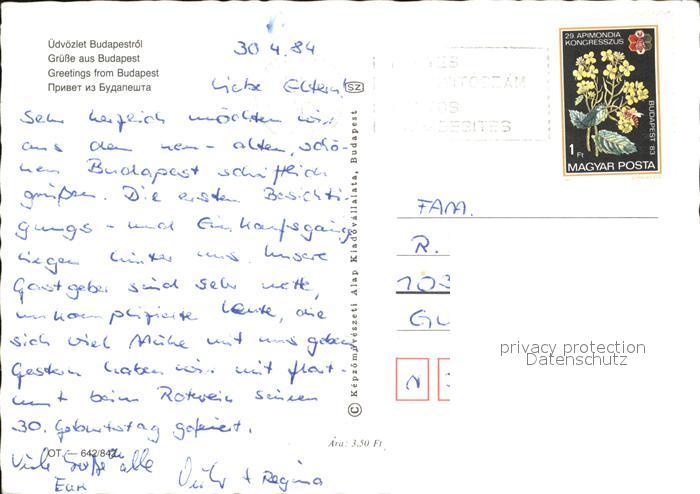 Üdvözlet Budapestről
Grüße aus Budapest
Greetings from Budapest
Привет из Будапешта
30.4.84
Liebe Eltern!
SZ
Sehr herzlich möchten wir
aus dem neu-alten, schö-
nen Budapest schriftlich
grüßen. Die ersten Besichti-
gungs- und Einkaufsgänge
liegen hinter uns. Unsere
Gastgeber sind sehr nette,
unkomplizierte Leute, die
sich viel Mühe mit uns geben.
Gestern haben wir mit
beim Rotwein seinen
30. Geburtstag gefeiert.
OT. — 642/842
Viele Grüße alle
Eure
+ Regina
Ára: 3,50 Ft
© Képzőművészeti Alap Kiadóvállalata, Budapest
29. APIMONDIA
KONGRESSZUS
BUDAPEST 83
1 Ft
MAGYAR POSTA
FAM.
R.
103
GU
N
privacy protection
Datenschutz